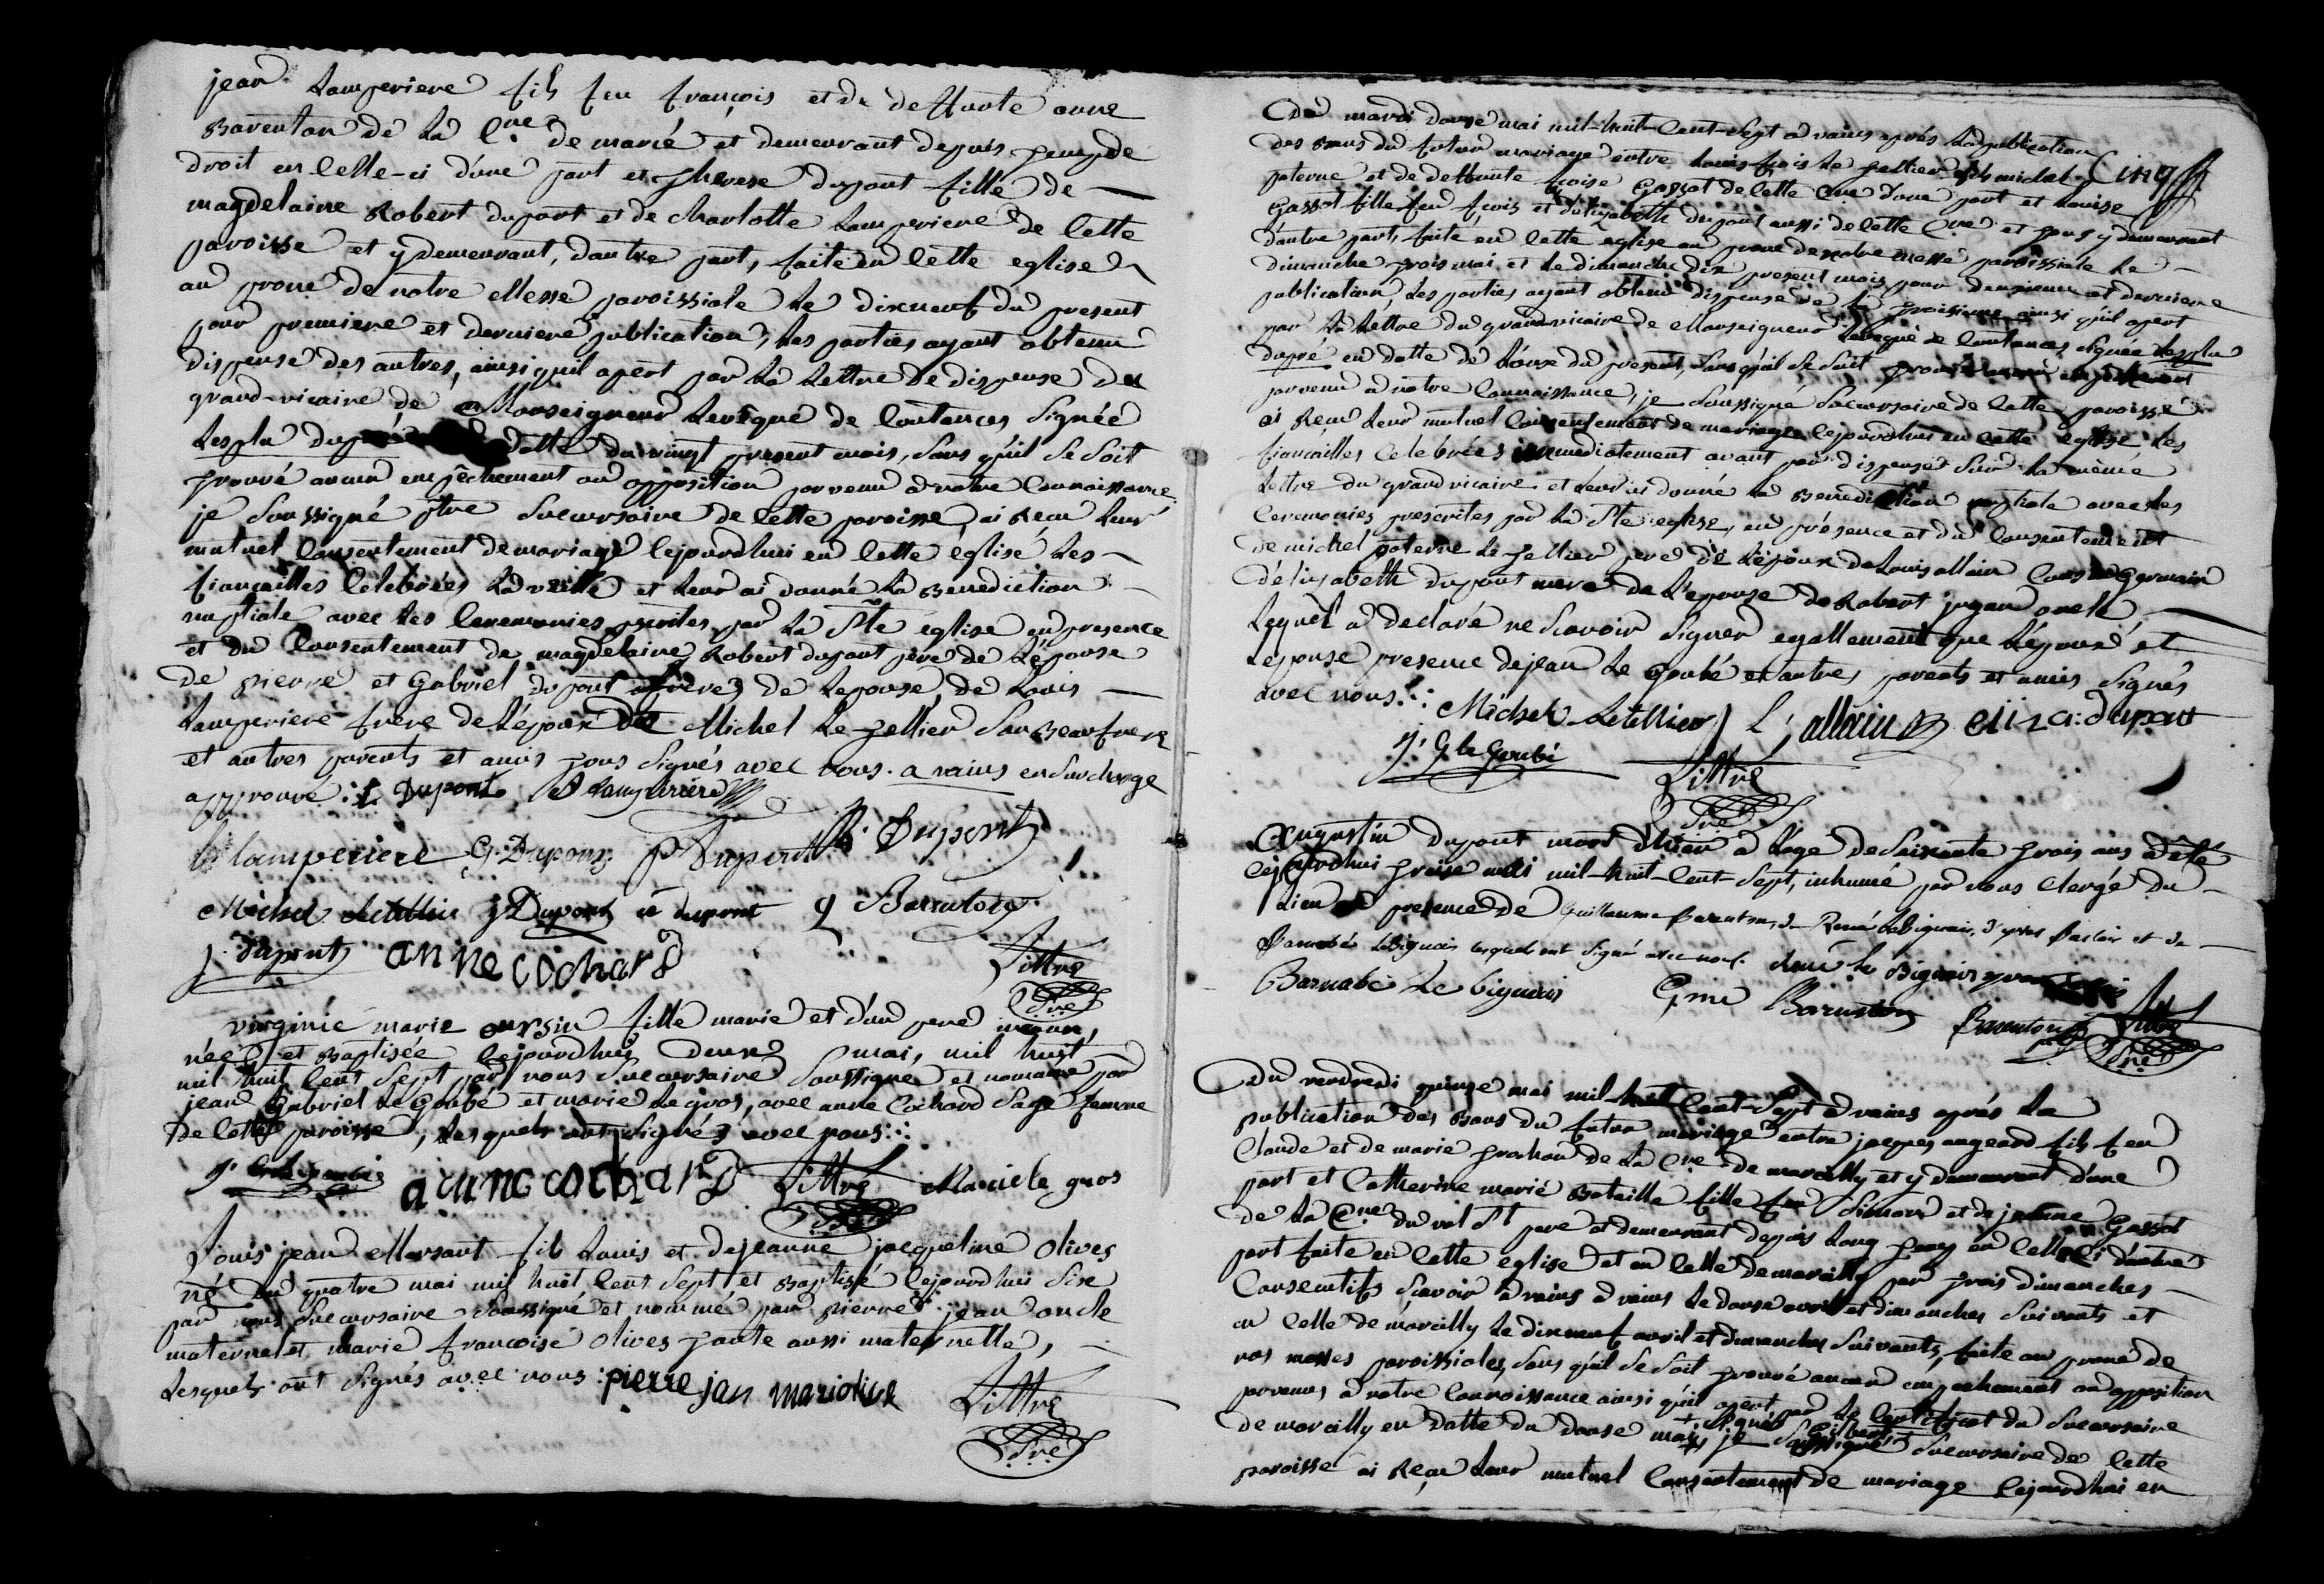 jean Lamperiere fils feu françois et de deffunte anne
Barenton de la Cne de marcé et demeurant depuis temps de
droit en celle-ci d'une part et therese dupont fille de
magdelaine Robert dupont et de charlotte Lamperiere de cette
paroisse et y demeurant, d'autre part, faite en cette eglise
au prone de notre Messe paroissiale le dixneuf du present
pour premiere et derniere publication, les parties ayant obtenu
dispense des autres, ainsi qu'il apert par la lettre de dispense du
grand-vicaire de Monseigneur l'evêque de Coutances signée
Lesplu dupré datte du vingt present mois, sans qu'il se soit
trouvé aucun empêchement ou opposition parvenu à notre connaissance
je soussigné ptre succursaire de cette paroisse, ai Reçu leur
mutuel consentement de mariage cejourdhui en cette église les
fiançailles célebrées la veille et leur ai donné la Benediction
nuptiale avec les ceremonies pscrites par la Ste église en presence
et du Consentement de magdelaine Robert dupont père de l'épouse
de pierre et Gabriel dupont frères de l'epouse, de Louis
Lamperiere frere de l'époux de Michel le tellier son Beaufrere
et autres parents et amis tous signés avec nous. a vains en surcharge
approuvé : Dupont Lamperiere
lamperiere G. Dupont P Dupont R. Dupont
Michel Letellier J Dupont dupont Barenton
J. dupont anne cochard Littré
Ptre
virginie marie oursin fille marie et d'un pere inconu,
née et Baptisée cejourdhui deux mai, mil huit
mil huit cent sept par nous succursaire soussigné et nommée par
jean Gabriel le Goubé et marie le gros, avec anne Cochard sage femme
de cette paroisse, lesquels ont signés avec nous :
anne cochard Littré Marie le gros
Ptre
Louis jean Marsant fils Louis et de jeanne jacqueline Olives
né du quatre mai mil huit cent sept et Baptisé cejourdhui six
par nous succursaire soussigné et nommé par pierre jean oncle
maternel et marie françoise Olives tante aussi maternelle,
lesquels ont signés avec nous : pierre jan mariolive Littré
Ptre
Cinq
Du mardi douze mai mil-huit-cent-sept à vains après la publication
des Bans du futur mariage entre Louis frçois le tellier fils michel
paterne et de deffunte frçoise Gassot de cette Cne d'une part et Louise
Gassot fille feu frçois et d'elizabeth dupont aussi de cette Cne et tous y demeurant
d'autre part, faite en cette eglise au prone de notre messe paroissiale le
dimanche trois mai et le dimanche dix present mois pour deuxieme et derniere
publication, les parties ayant obtenu dispense de la troisieme ainsi qu'il apert
par la lettre du grand-vicaire de Monseigneur l'evêque de Coutances signée Lesplu
dupré en datte de l'onze du present, sans qu'il se soit trouvé aucun empêchement
parvenu à notre connaissance, je soussigné succursaire de cette paroisse
ai Reçu leur mutuel consentement de mariage cejourdhui en cette eglise les
fiançailles celebrées immediatement avant par dispense sur la même
lettre du grand vicaire et leur ai donné la Benediction nuptiale avec les
ceremonies prescrites par la Ste eglise, en présence et du consentement
de michel paterne le tellier pere de l'époux de Louis allain cousin Germain
d'elisabeth dupont mere de l'epouse de Robert jugan oncle
lequel a declaré ne sçavoir signer egallement que l'époux et
l'epouse presence de jean le Goubé et autres parents et amis signés
avec nous. : Michel Letellier L allain eliza: dupont
J. G le Goubé Littré
Ptre
Augustin dupont mort d'hier a l'age de soixante trois ans a été
cejourdhui treize mai mil-huit-cent-sept, inhumé par nous clergé du
lieu presence de Guillaume Barenton, de René le Bignais, d'yves et de
Barnabé lebignais lesquels ont signé avec nous. rené le Bignais
Barnabé Le bignais Gme Barenton Barenton Littré
Ptre
Du vendredi quinze mai mil-huit-cent-sept à vains après la
publication des Bans du futur mariage entre jacques angeard fils feu
Claude et de marie trochon de la Cne de marcilly et y demeurant d'une
part et Catherine marie Bataille fille feu simeon et de jeanne Gassot
de la Cne du val St pere et demeurant depuis long temps en celle-ci d'autre
part faite en cette eglise et en celle de marcilly par trois dimanches
Consecutifs sçavoir à vains le douze avril et dimanches suivants et
en celle de marcilly le dixneuf avril et dimanches suivants, faite au prone de
nos messes paroissiales, sans qu'il se soit trouvé aucun empechement ou opposition
parvenus à notre connoissance ainsi qu'il apert par le certificat du succursaire
de marcilly en datte du douze mai je soussigné succursaire de cette
paroisse ai Reçu leur mutuel consentement de mariage cejourdhui en